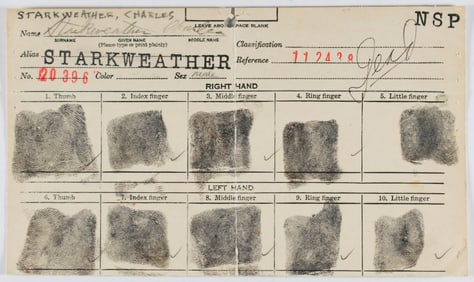 STARKWEATHER, CHARLES
LEAVE ABOVE SPACE BLANK
NSP
Name Starkweather
SURNAME GIVEN NAME MIDDLE NAME
(Please type or print plainly)
Classification
Alias STARKWEATHER
Reference 112438
Dead
No. 20396 Color Sex male
RIGHT HAND
1. Thumb 2. Index finger 3. Middle finger 4. Ring finger 5. Little finger
LEFT HAND
6. Thumb 7. Index finger 8. Middle finger 9. Ring finger 10. Little finger